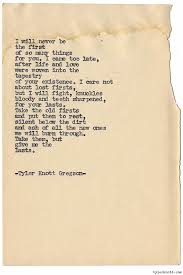 I will never be
the first
of so many things
for you. I came too late,
after life and love
were woven into the
tapestry
of your existence. I care not
about lost firsts,
but I will fight, knuckles
bloody and teeth sharpened,
for your lasts.
Take the old firsts
and put them to rest,
silent below the dirt
and ash of all the new ones
we will burn through.
Take them, but
give me the
lasts.
-Tyler Knott Gregson-